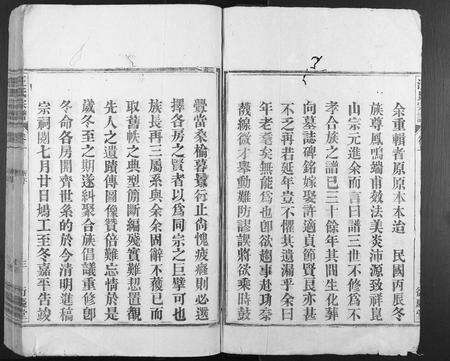 余重輯者原原本本迨　民國丙辰冬
族尊鳳鳴瑞甫敘法美炎沛源致祥崑
山宗元進余而言曰譜三世不修爲不
孝合族之譜已三十餘年其間生化葬
向墓誌碑銘嫁娶許適貞節賢良亦甚
不乏再若延年豈不懼其遺漏乎余曰
年老耄矣無能爲也卽欲趨事赴功奈
襪線微才舉動難防謬誤將欲乘時鼓
疊當桑榆暮景行止尙愧疲癃則必選
擇各房之賢者以爲同宗之巨擘可也
族長再三屬系與余余因辭不獲已而
取舊帙之典型簡斷編殘實難恝置覩
先人之遺蹟傳圖像贊倍難忘情於是
歲冬至之期遂糾聚合族倡議重修卽
冬命各房開齊世系約於今清明進稿
宗祠閱七月廿日塲工至冬嘉平告竣